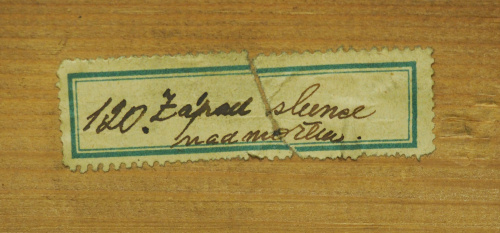 120. Západ slunce
nad mořem.